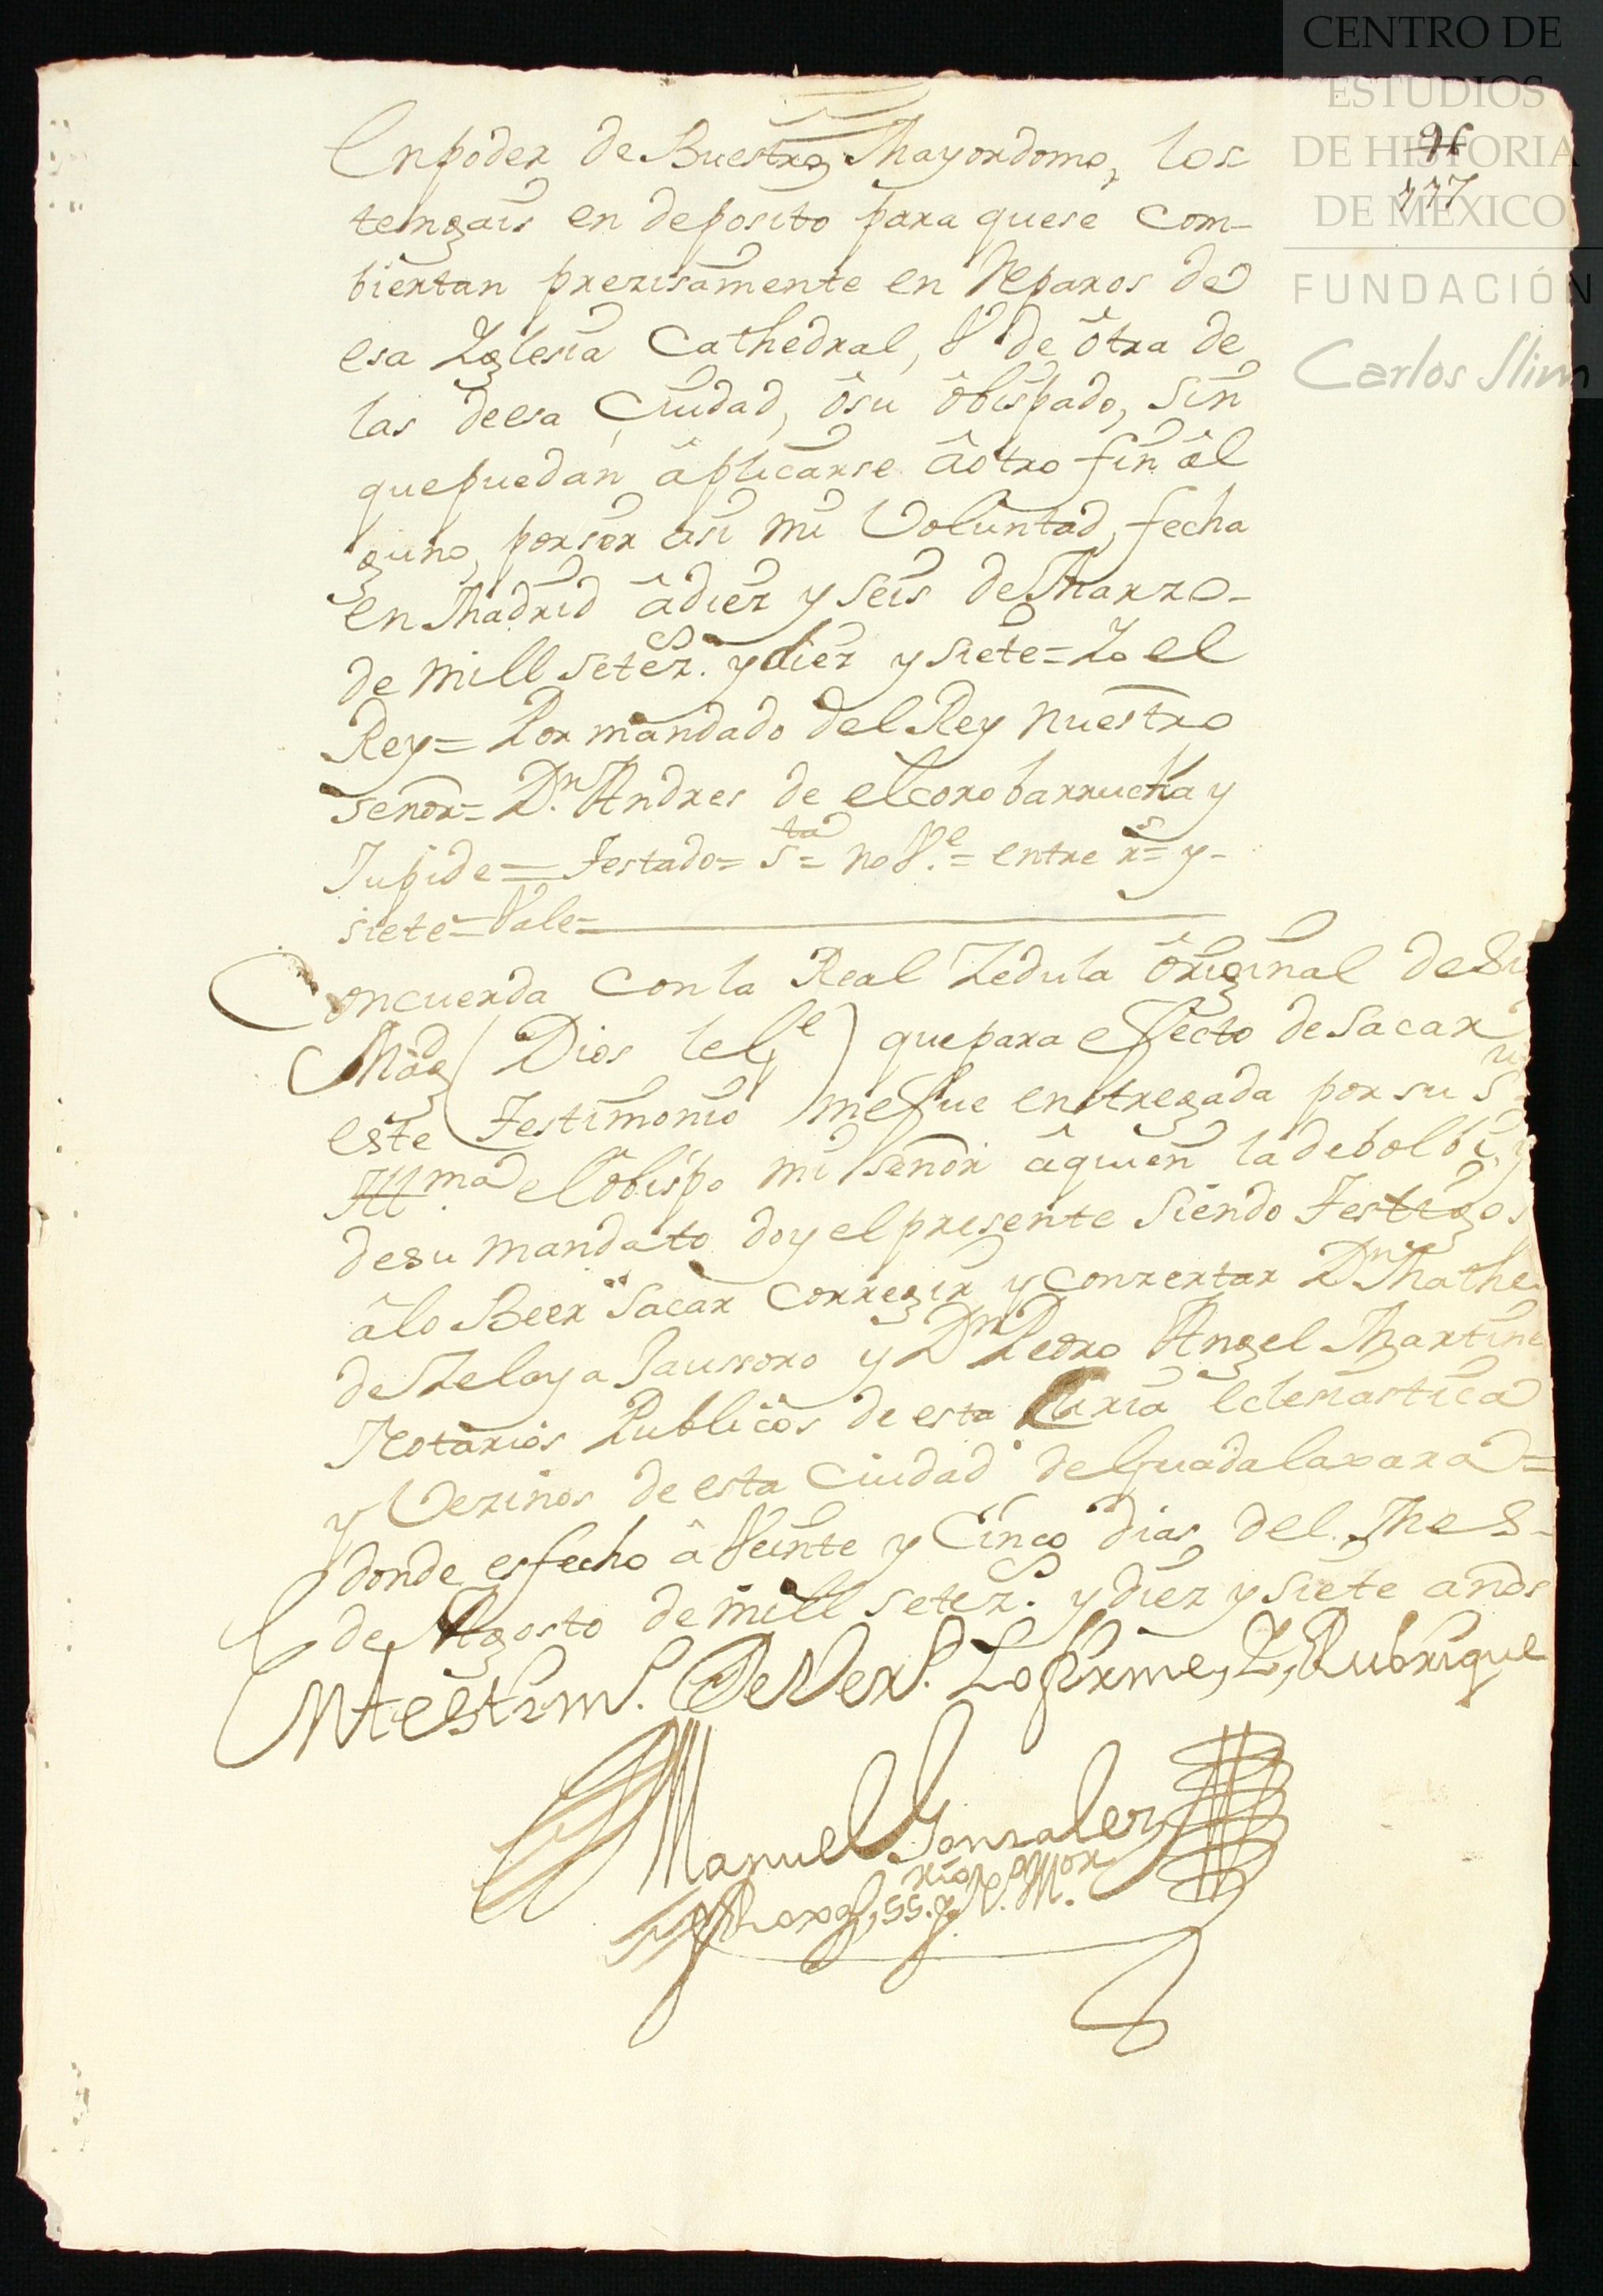 CENTRO DE
ESTUDIOS
DE HISTORIA
DE MÉXICO
FUNDACIÓN
Carlos Slim
96
177
Enpoder de Buestro Mayordomo, los
tengais en deposito para quese com-
biertan prezisamente en Reparos de
esa Yglesia Cathedral, V de ôtra de
las deesa Ciudad, ôsu ôbispado, sin
quepuedan âplicarse âôtro fin âl
guno, porser asi mi Voluntad, fecha
en Madrid âdiez y seis de Marzo-
de mill setez.os ydiez y siete= Yo el
Rey= Por mandado del Rey nuestro
señor= Dn. Andres de elcorobarrucha y
Jupide= Testado= sta= no Ve.= entre rs= y-
siete= Vale=
Concuerda con la Real Zedula ôriginal deSu
Magd (Dios leGe) quepara effecto de sacar
este Testimonio mefue entregada por su Sria
Illma. elôbispo mi señor âquien ladebolbi, y
desu mandato doy elpresente siendo Testigos
âlo Beer sacar correxir y conzertar Dn Mathe
de Zelaya y Dn Pedro Angel Martine
Notarios Publicos de esta Curia eclesiastica
y Vezinos de esta Ciudad de Guadalaxara=
donde esfecho â Veinte y Cinco dias del Mes-
de Agosto de mill setez.os y diez y siete años
EnTestim.o De Ver.d Lofirme, Y, Rubrique
Manuel Gonzalez